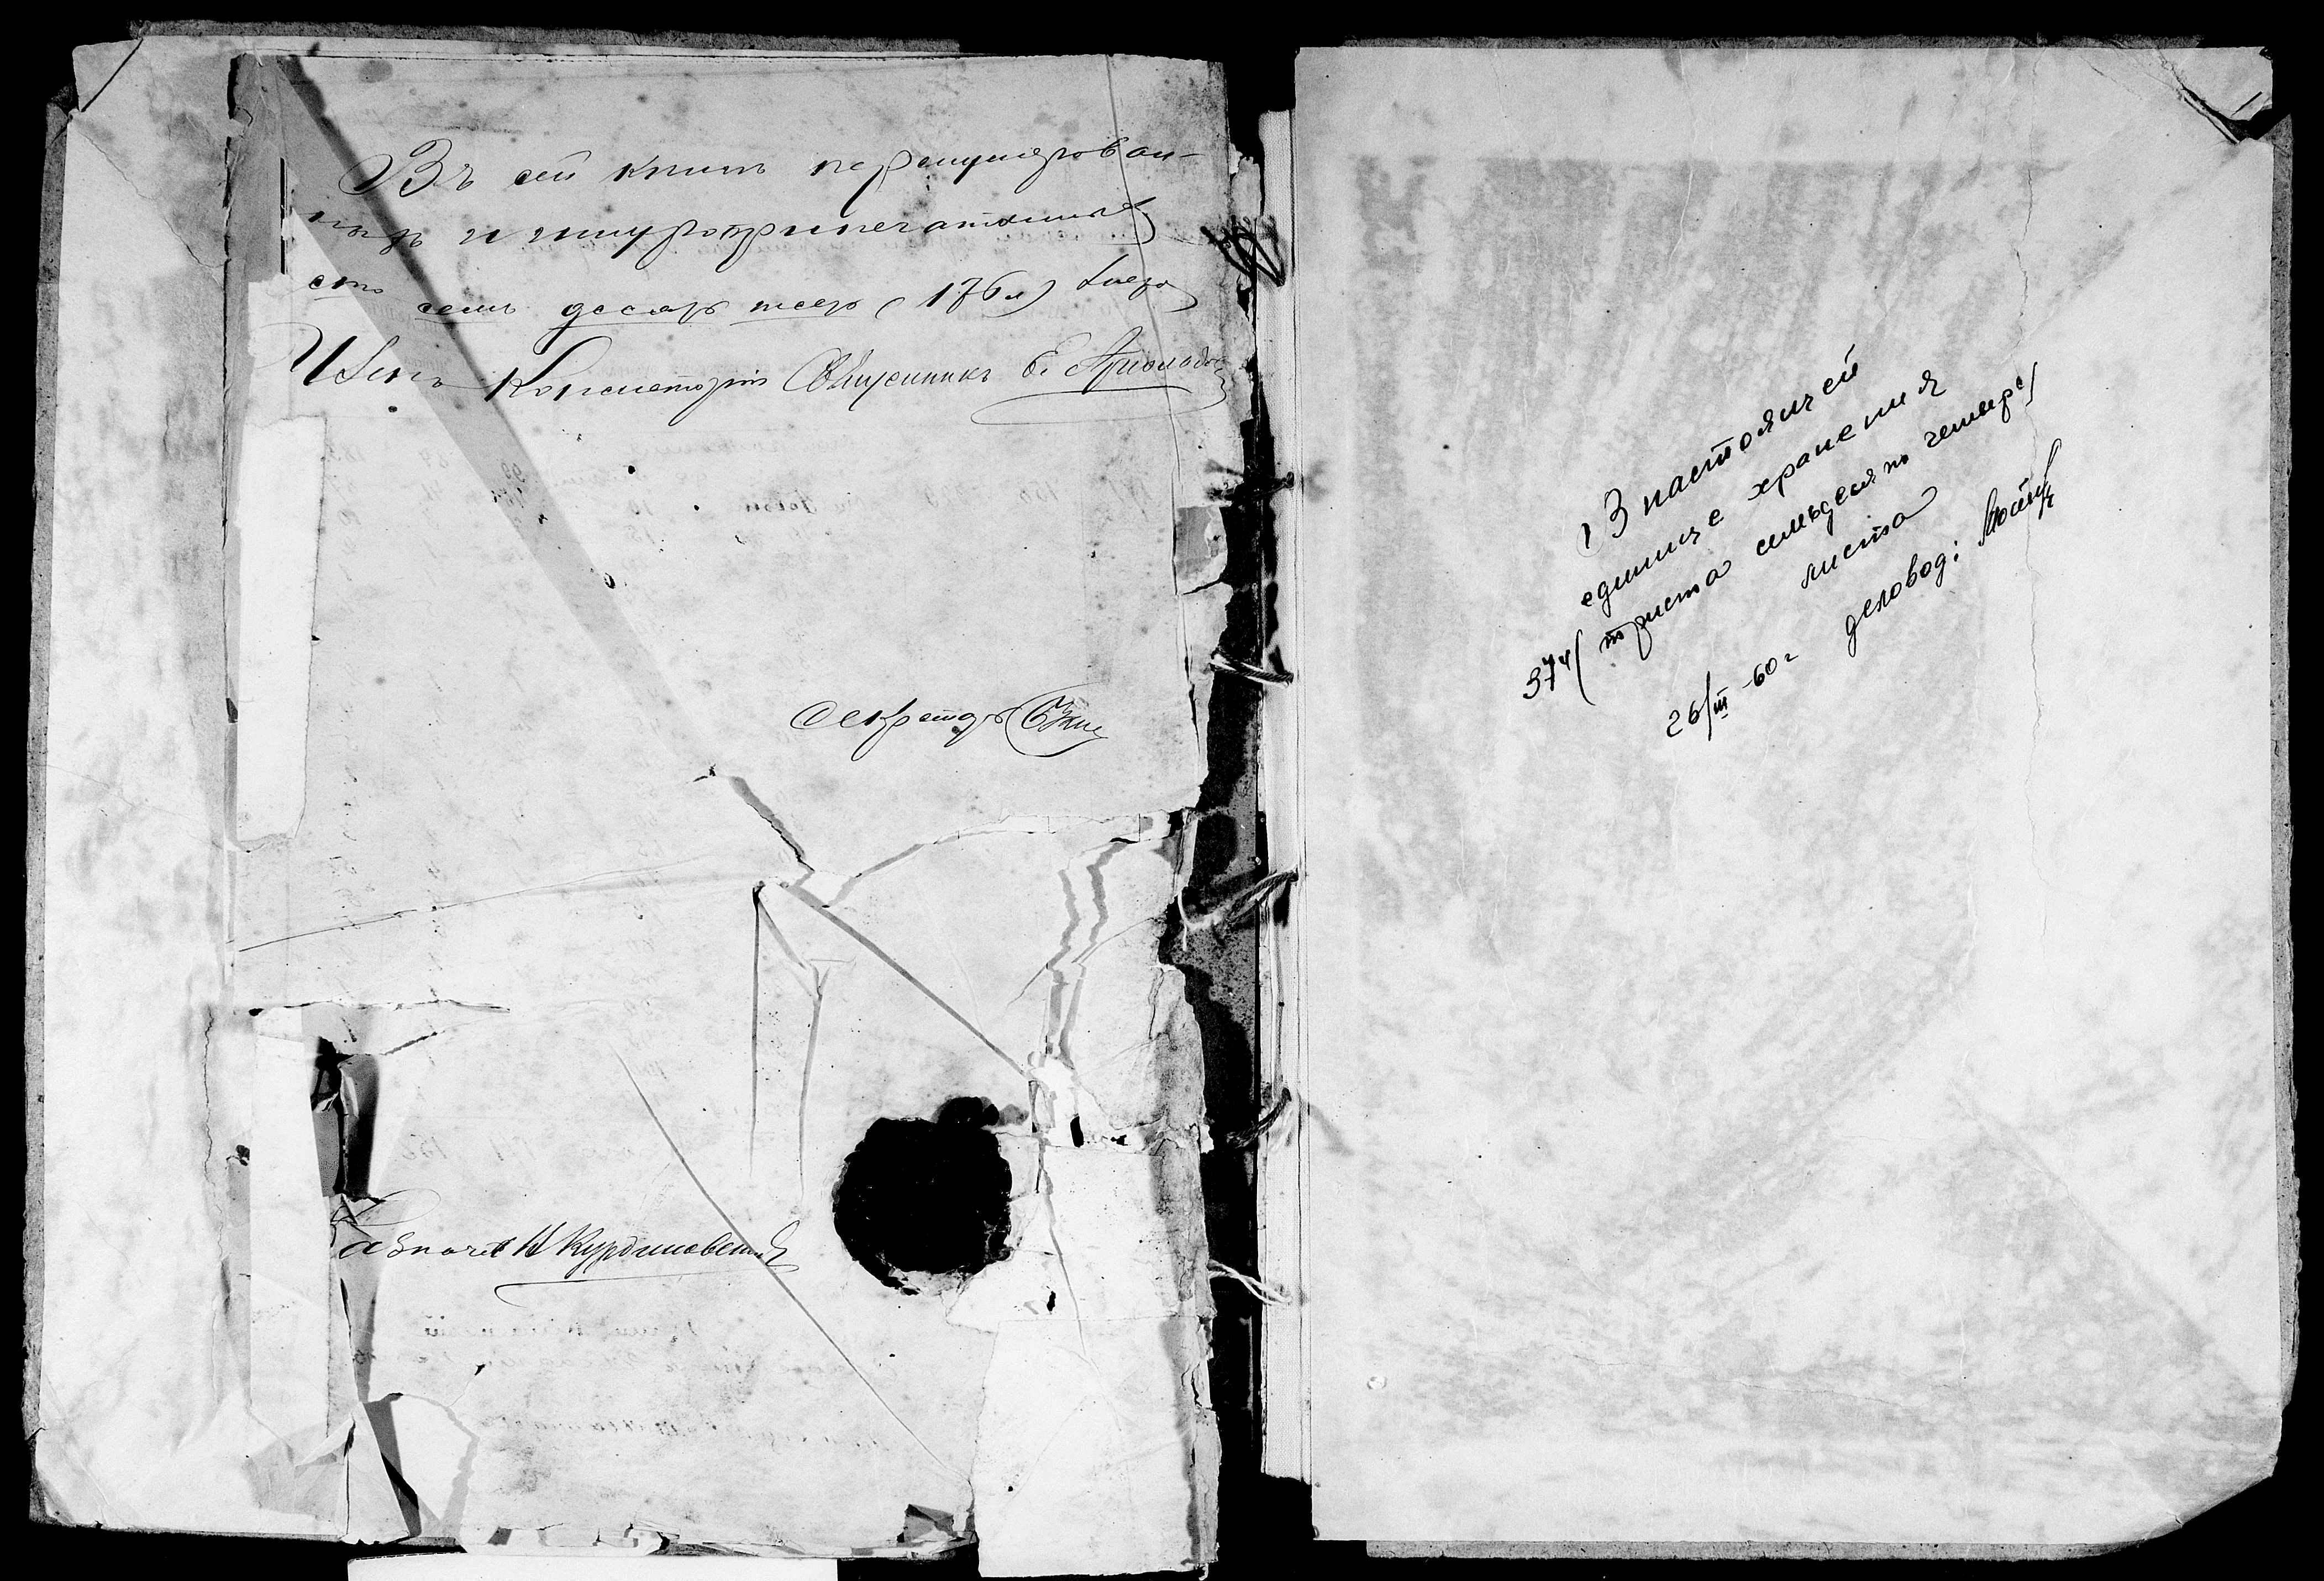 Въ сей книгѣ перенумерован-
ныхъ и шнуроприпечатанныхъ
сто семь десятъ шесть (176 л) листовъ
Членъ Консисторіи Священникъ Е. Арнольдовъ
Секретарь
Казначей Н Курдиновскій
В настоящей
единице хранения
374 (триста семьдесят четыре)
листа
26/III-60 г деловод: